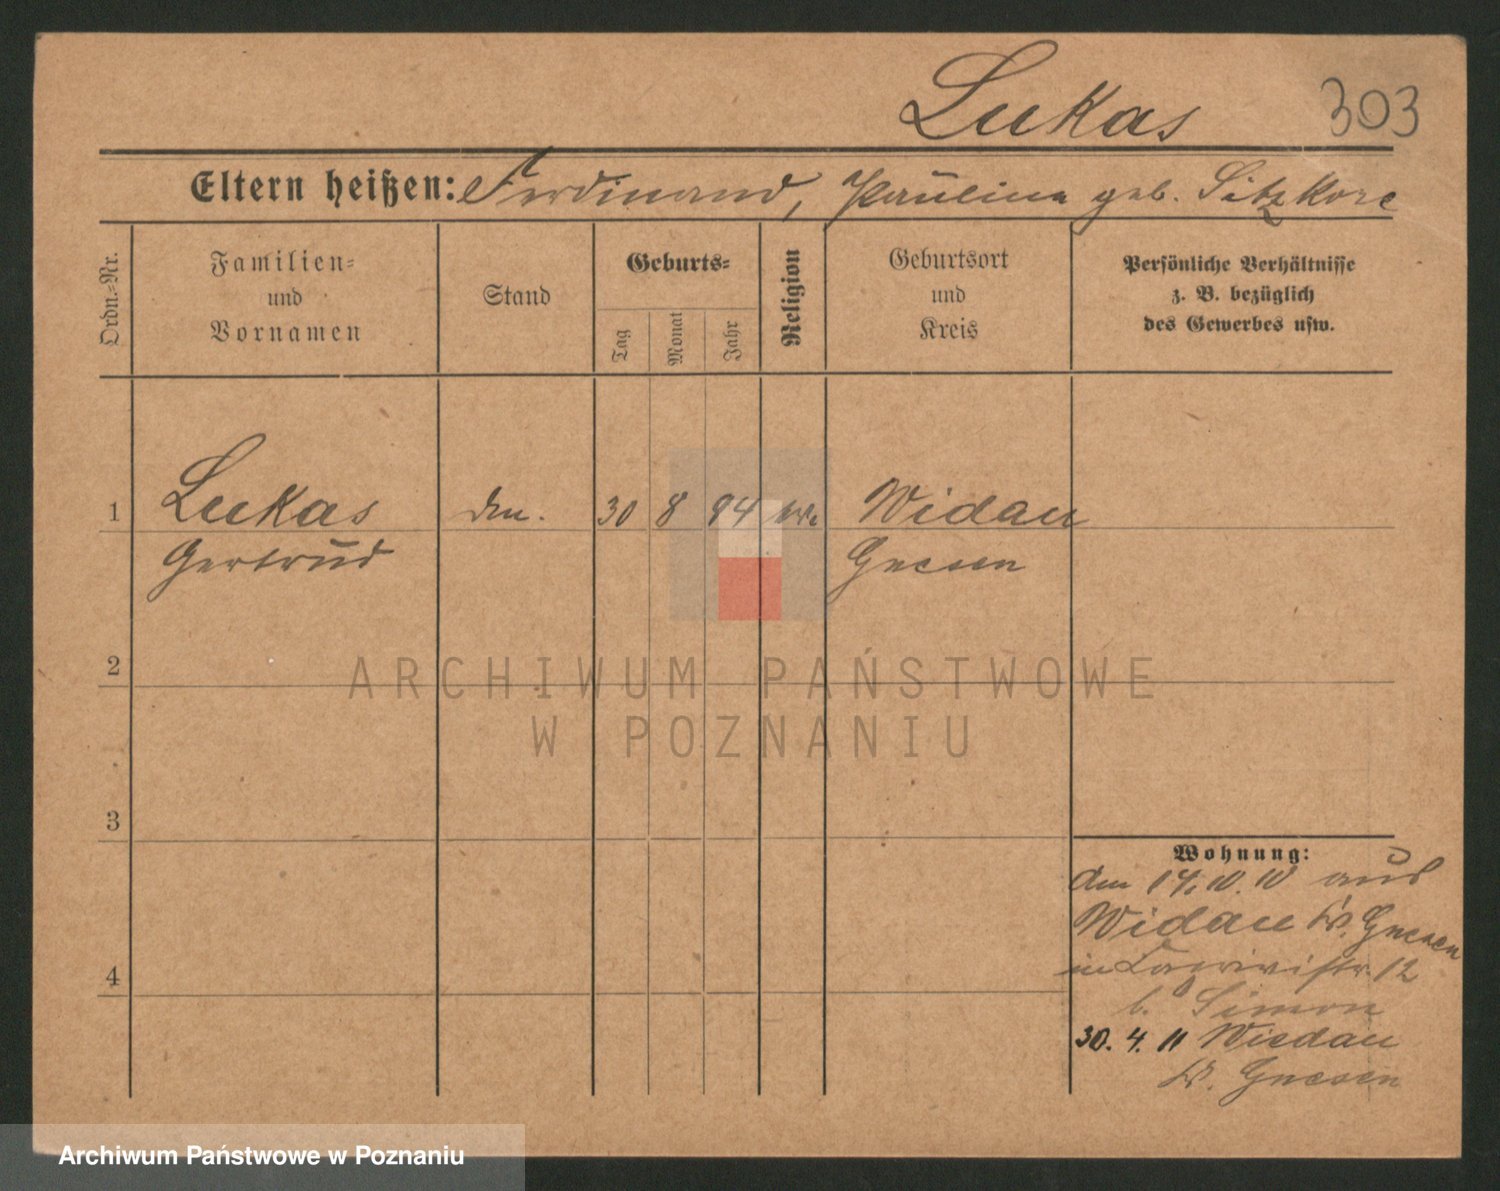 Lukas 303
Eltern heißen: Ferdinand, Paulina geb. Sitzkore
Ordn.-Nr.
Familien-
und
Vornamen
Stand
Geburts-
Tag
Monat
Jahr
Religion
Geburtsort
und
Kreis
Persönliche Verhältnisse
z. B. bezüglich
des Gewerbes usw.
1 Lukas 30 8 94 Widau
Gertrud Gnesen
2
ARCHIWUM PAŃSTWOWE
W POZNANIU
3
Wohnung:
den 14.10.10 aus
Widau Kr. Gnesen
in 12
4
b. Simon
30. 4. 11 Wiedau
Kr. Gnesen
Archiwum Państwowe w Poznaniu